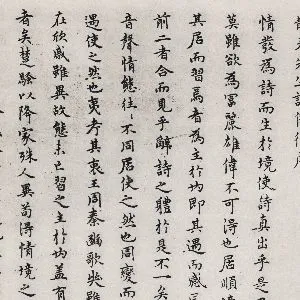 情發為詩而生於境使詩真出乎是
莫雖欲為富麗雄偉不可得也居順
其居而習焉者為主於內即其遇而感
前二者合而見乎辭詩之體於是不一矣
音聲情態往往不同居使之然也周變而
遇使之然也夷考其衷王周秦豳歌奘雖
在欣感雖異故態未亡習之主於內蓋有
者矣楚騷以降家殊人異苟得情境之